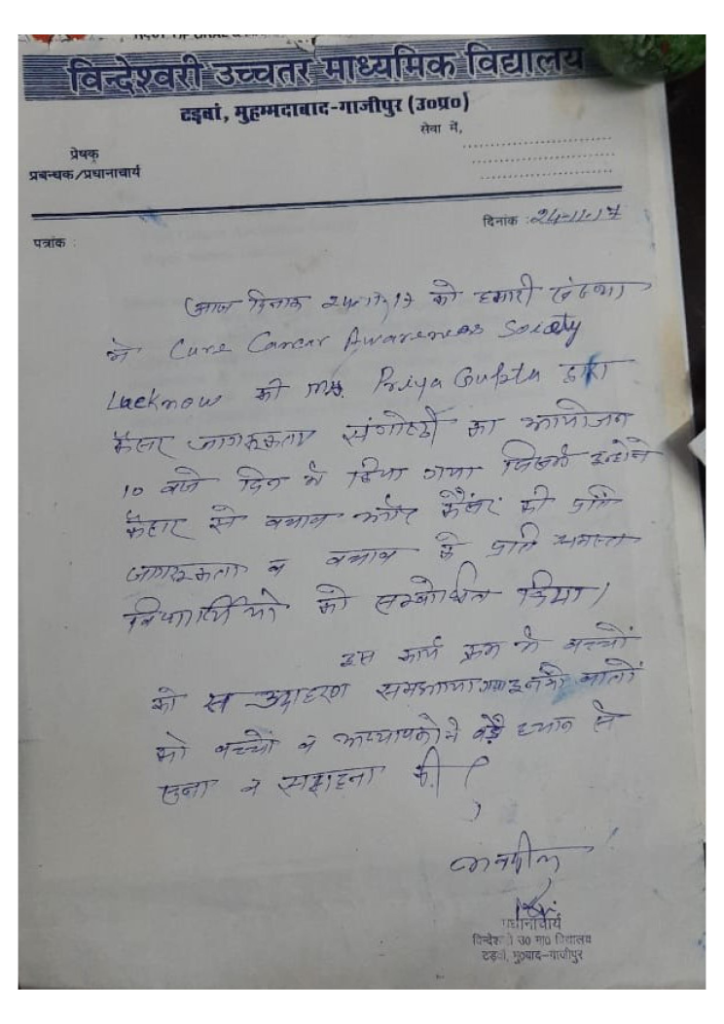 विन्देश्वरी उच्चतर माध्यमिक विद्यालय
टड़वां, मुहम्मदाबाद-गाजीपुर (उ०प्र०)
सेवा में,
प्रेषक
प्रबन्धक/प्रधानाचार्य
दिनांक : 24-11-17
पत्रांक :
आज दिनांक 24-11-17 को हमारी संस्था
में Cure Cancer Awareness Society
Lucknow की Ms. Priya Gupta द्वारा
कैंसर जागरूकता संगोष्ठी का आयोजन
10 बजे दिन में किया गया जिसमें इन्होंने
कैंसर से बचाव और कैंसर की प्रति
जागरूकता व बचाव के प्रति समस्त
विद्यार्थियों को सम्बोधित किया।
इस कार्य क्रम में बच्चों
को स उदाहरण समझाया गया इनकी बातों
को बच्चों व अध्यापकों ने बड़े ध्यान से
सुना व सराहना की।
प्रधानाचार्य
विन्देश्वरी उ० मा० विद्यालय
टड़वां, मु०बाद-गाजीपुर